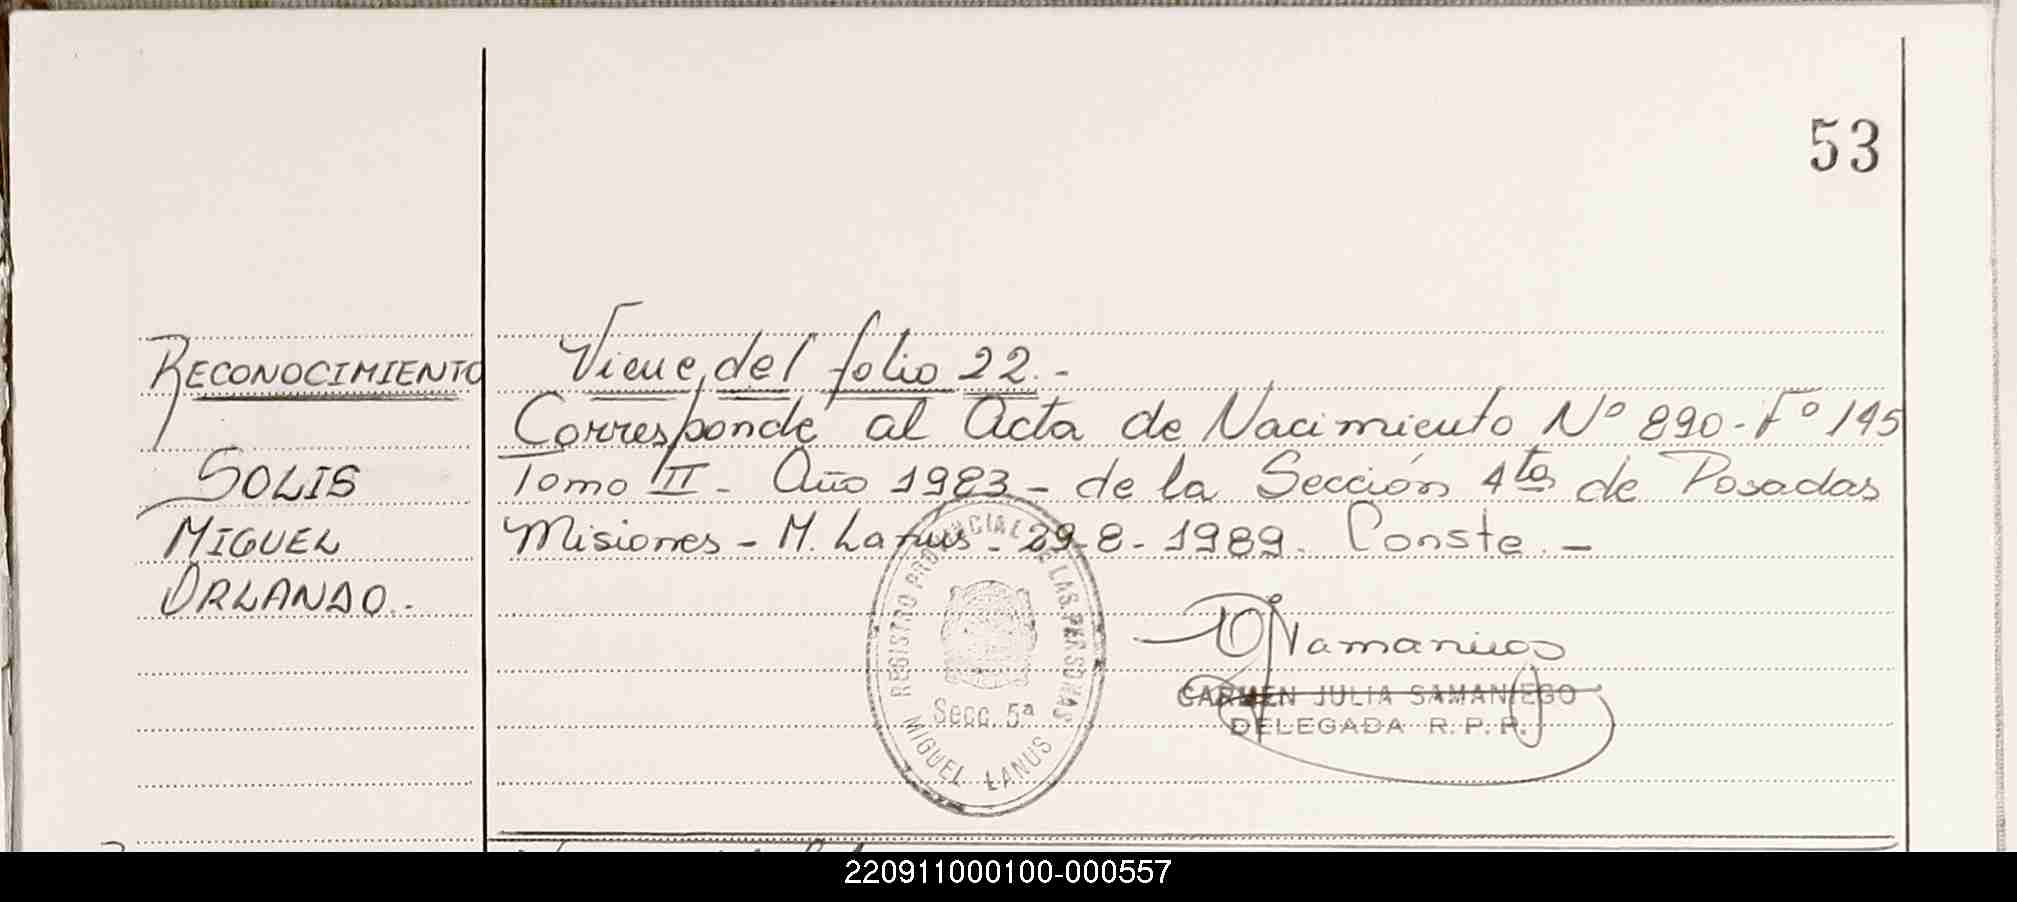 53
RECONOCIMIENTO
SOLIS
MIGUEL
ORLANDO.-
Viene del folio 22.-
Corresponde al Acta de Nacimiento Nº 890-Fº 145
Tomo II - Año 1983 - de la Sección 4ta de Posadas
Misiones - M. Lanus - 29-8-1989. Conste. -
REGISTRO PROVINCIAL DE LAS PERSONAS
Secc. 5ª
MIGUEL LANUS
CARMEN JULIA SAMANIEGO
DELEGADA R.P.P.
220911000100-000557